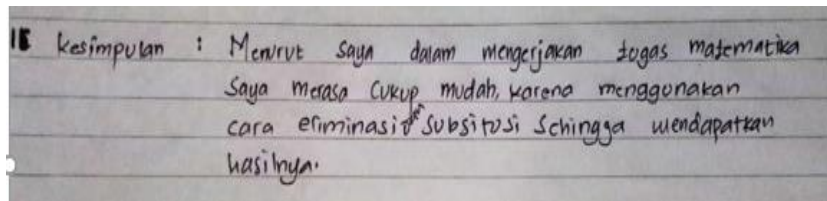 15 Kesimpulan : Menurut saya dalam mengerjakan togas matematika
Saya merasa cukup mudah, karena menggunakan
cara eriminasi dan Subsitusi Schingga mendapatkan
hasilnya.